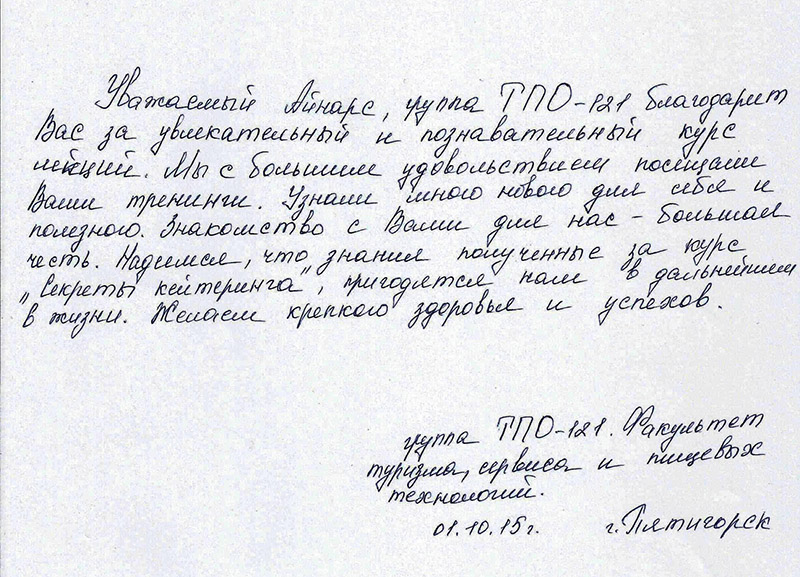 Уважаемый Айнарс, группа ТПО-121 благодарит
Вас за увлекательный и познавательный курс
лекций. Мы с большим удовольствием посещали
Ваши тренинги. Узнали много нового для себя и
полезного. Знакомство с Вами для нас - большая
честь. Надеемся, что знания полученные за курс
„Секреты кейтеринга", пригодятся нам в дальнейшем
в жизни. Желаем крепкого здоровья и успехов.
группа ТПО-121. Факультет
туризма, сервиса и пищевых
технологий.
01.10.15г. г. Пятигорск